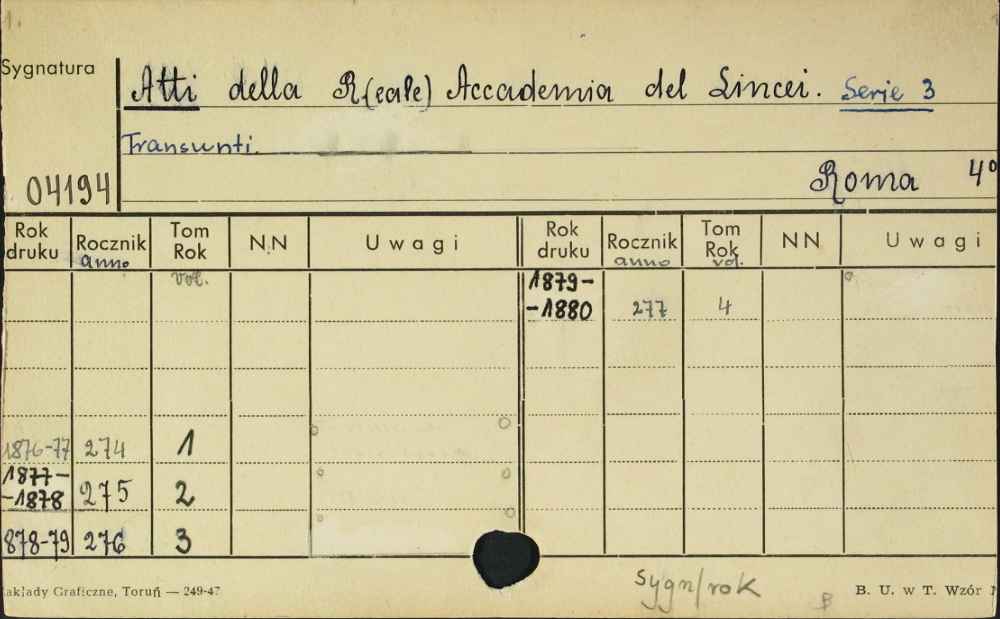 1.
Sygnatura
Atti della R(eale) Accademia del Lincei. Serie 3
Transunti.
04194
Roma 4º
Rok druku Rocznik anno Tom Rok vol. NN Uwagi Rok druku Rocznik anno Tom Rok vol. NN Uwagi
1879-
-1880 277 4
1876-77 274 1
1877-
-1878 275 2
878-79 276 3
akłady Graficzne, Toruń — 249-47
sygn/rok
B. U. w T. Wzór